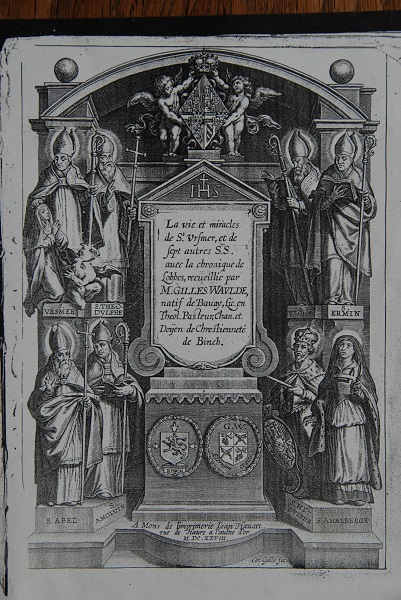 IHS
La vie et miracles
de St. Vrsmer, et de
sept autres S.S.
avec la chronique de
Lobbes, recueillie par
M. GILLES WAVLDE,
natif de Bavay, Lic. en
Theol. Pasteur, Chan. et
Doÿen de Chrestienneté
de Binch.
VRSMER
S. THEO
DVLPHE
ERMIN
G.W.
S. ABEL
S. AMOLVIN
S. AMALBERGE
A Mons de l'imprimerie Jean Havart
rue de Haure a l'aulne d'or
M.DC.XXVIII.
Cor. Galle fec.